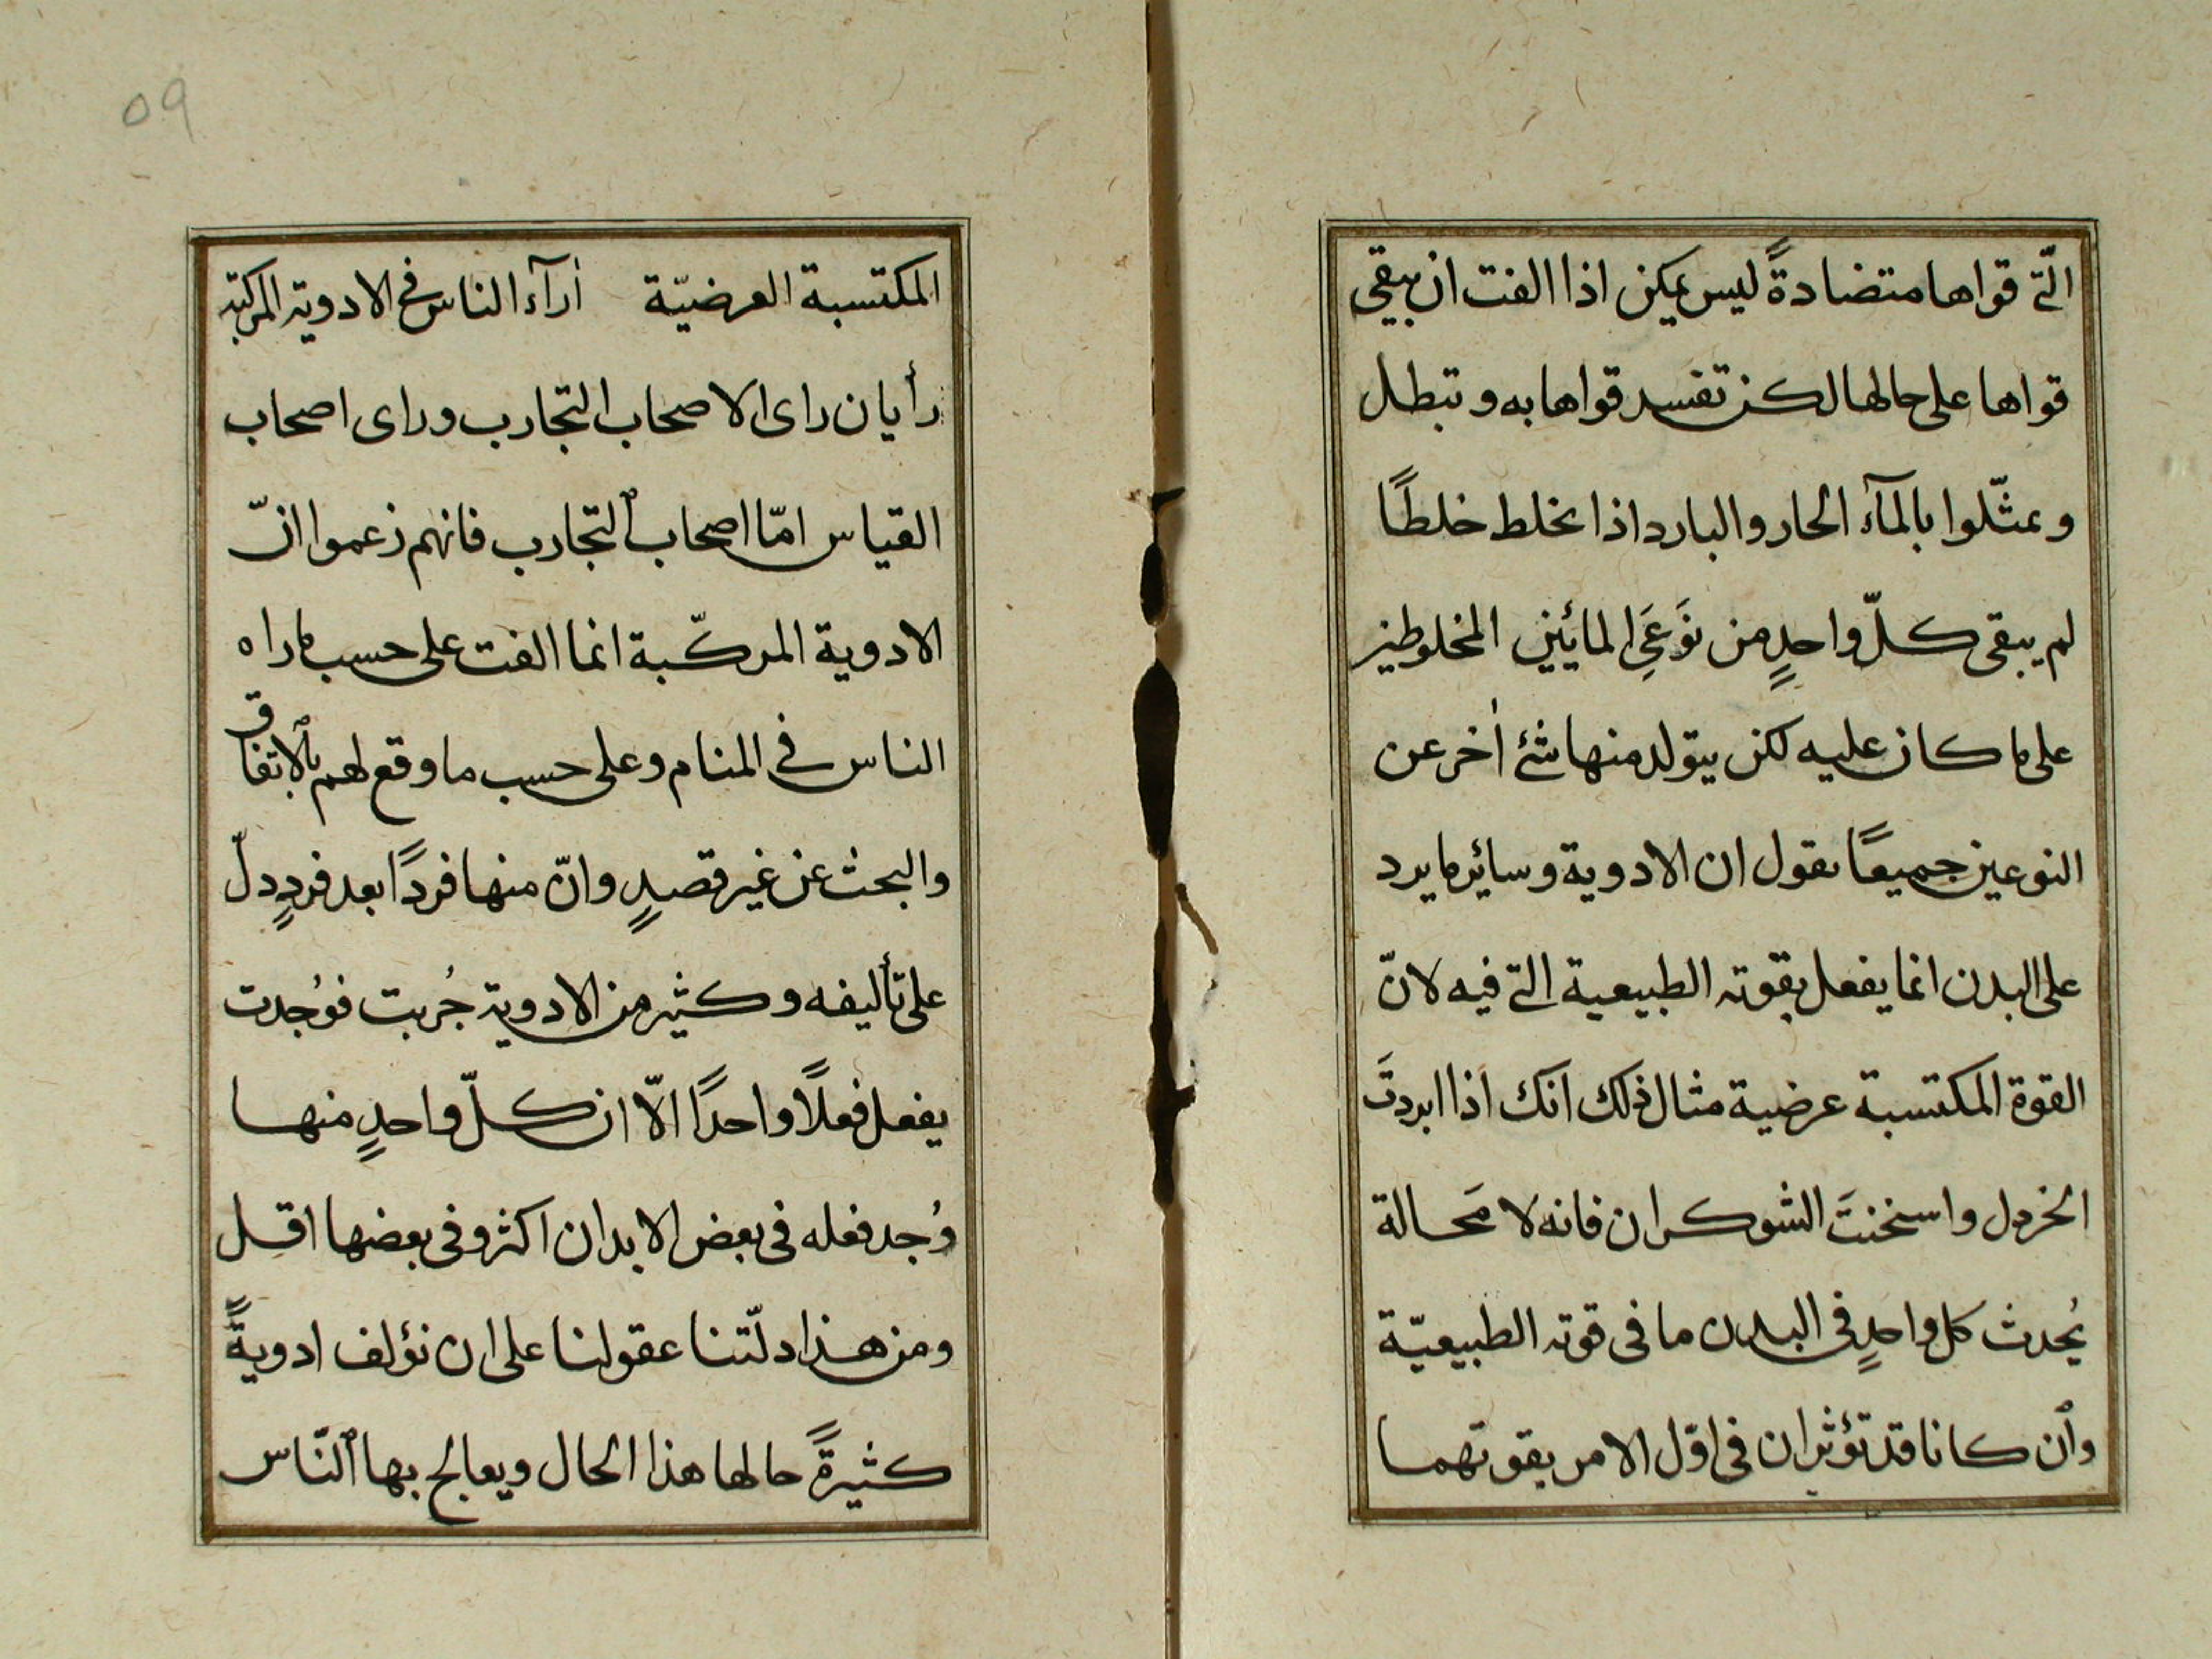 الّتى قواها متضادةً ليس يمكن اذا الفت ان يبقى
قواها على حالها لكن تفسد قواها به وتبطل
ويمثّلوا بالمآء الحار والبارد اذا يخلط خلطًا
لم يبقى كلّ واحدٍ من نَوعَيِ المائين المخلوطين
على ما كان عليه لكن يتولد منها شئ أخر عن
النوعين جميعًا نقول ان الادوية وسائير ما يرد
على البدن انما يفعل بقوته الطبيعية التى فيه لانّ
القوة المكتسبة عرضية مثال ذلك انك اذا ابردتَ
الخردل واسخنتَ الشوكران فانه لا مَحالة
يُحدث كل واحدٍ فى البدن ما فى قوته الطبيعيّة
وأن كانا قد تؤثران فى اوّل الامر بقوتهما
٥٩
المكتسبة العرضيّة أرآء الناس فى الادوية المركبة
رأيان راى الاصحاب التجارب وراى اصحاب
القياس امّا اصحاب التجارب فانهم زعموا انّ
الادوية المركّبة انما الفت على حسب ما راه
الناس فى المنام وعلى حسب ما وقع لهم بالاتفاق
والبحث عن غير قصدٍ وانّ منها فردًا بعد فردٍ دلّ
على تأليفه وكثير من الادوية جُربت فوُجدت
يفعل فعلًا واحدًا الّا ان كلّ واحدٍ منها
وُجد فعله فى بعض الابدان اكثر وفى بعضها اقل
ومن هذا دلّتنا عقولنا على ان نؤلف ادويةً
كثيرةً حالها هذا الحال ويعالج بها النّاس